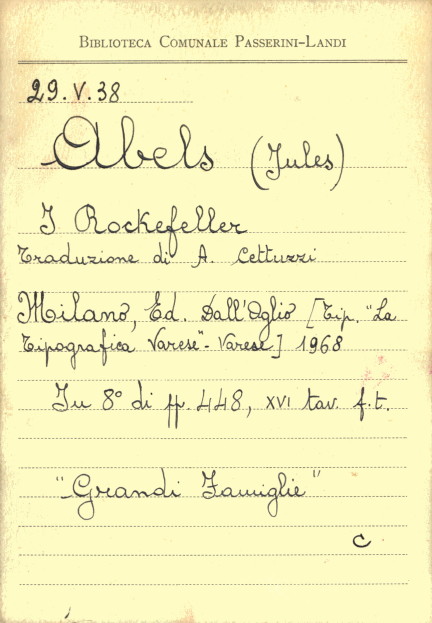 BIBLIOTECA COMUNALE PASSERINI-LANDI
29.V.38
Abels (Jules)
I Rockefeller
Traduzione di A. Cettuzzi
Milano, Ed. Dall'Oglio [Tip. "La
Tipografica Varese"- Varese] 1968
In 8° di pp. 448, XVI tav. f.t.
"Grandi Famiglie"
C